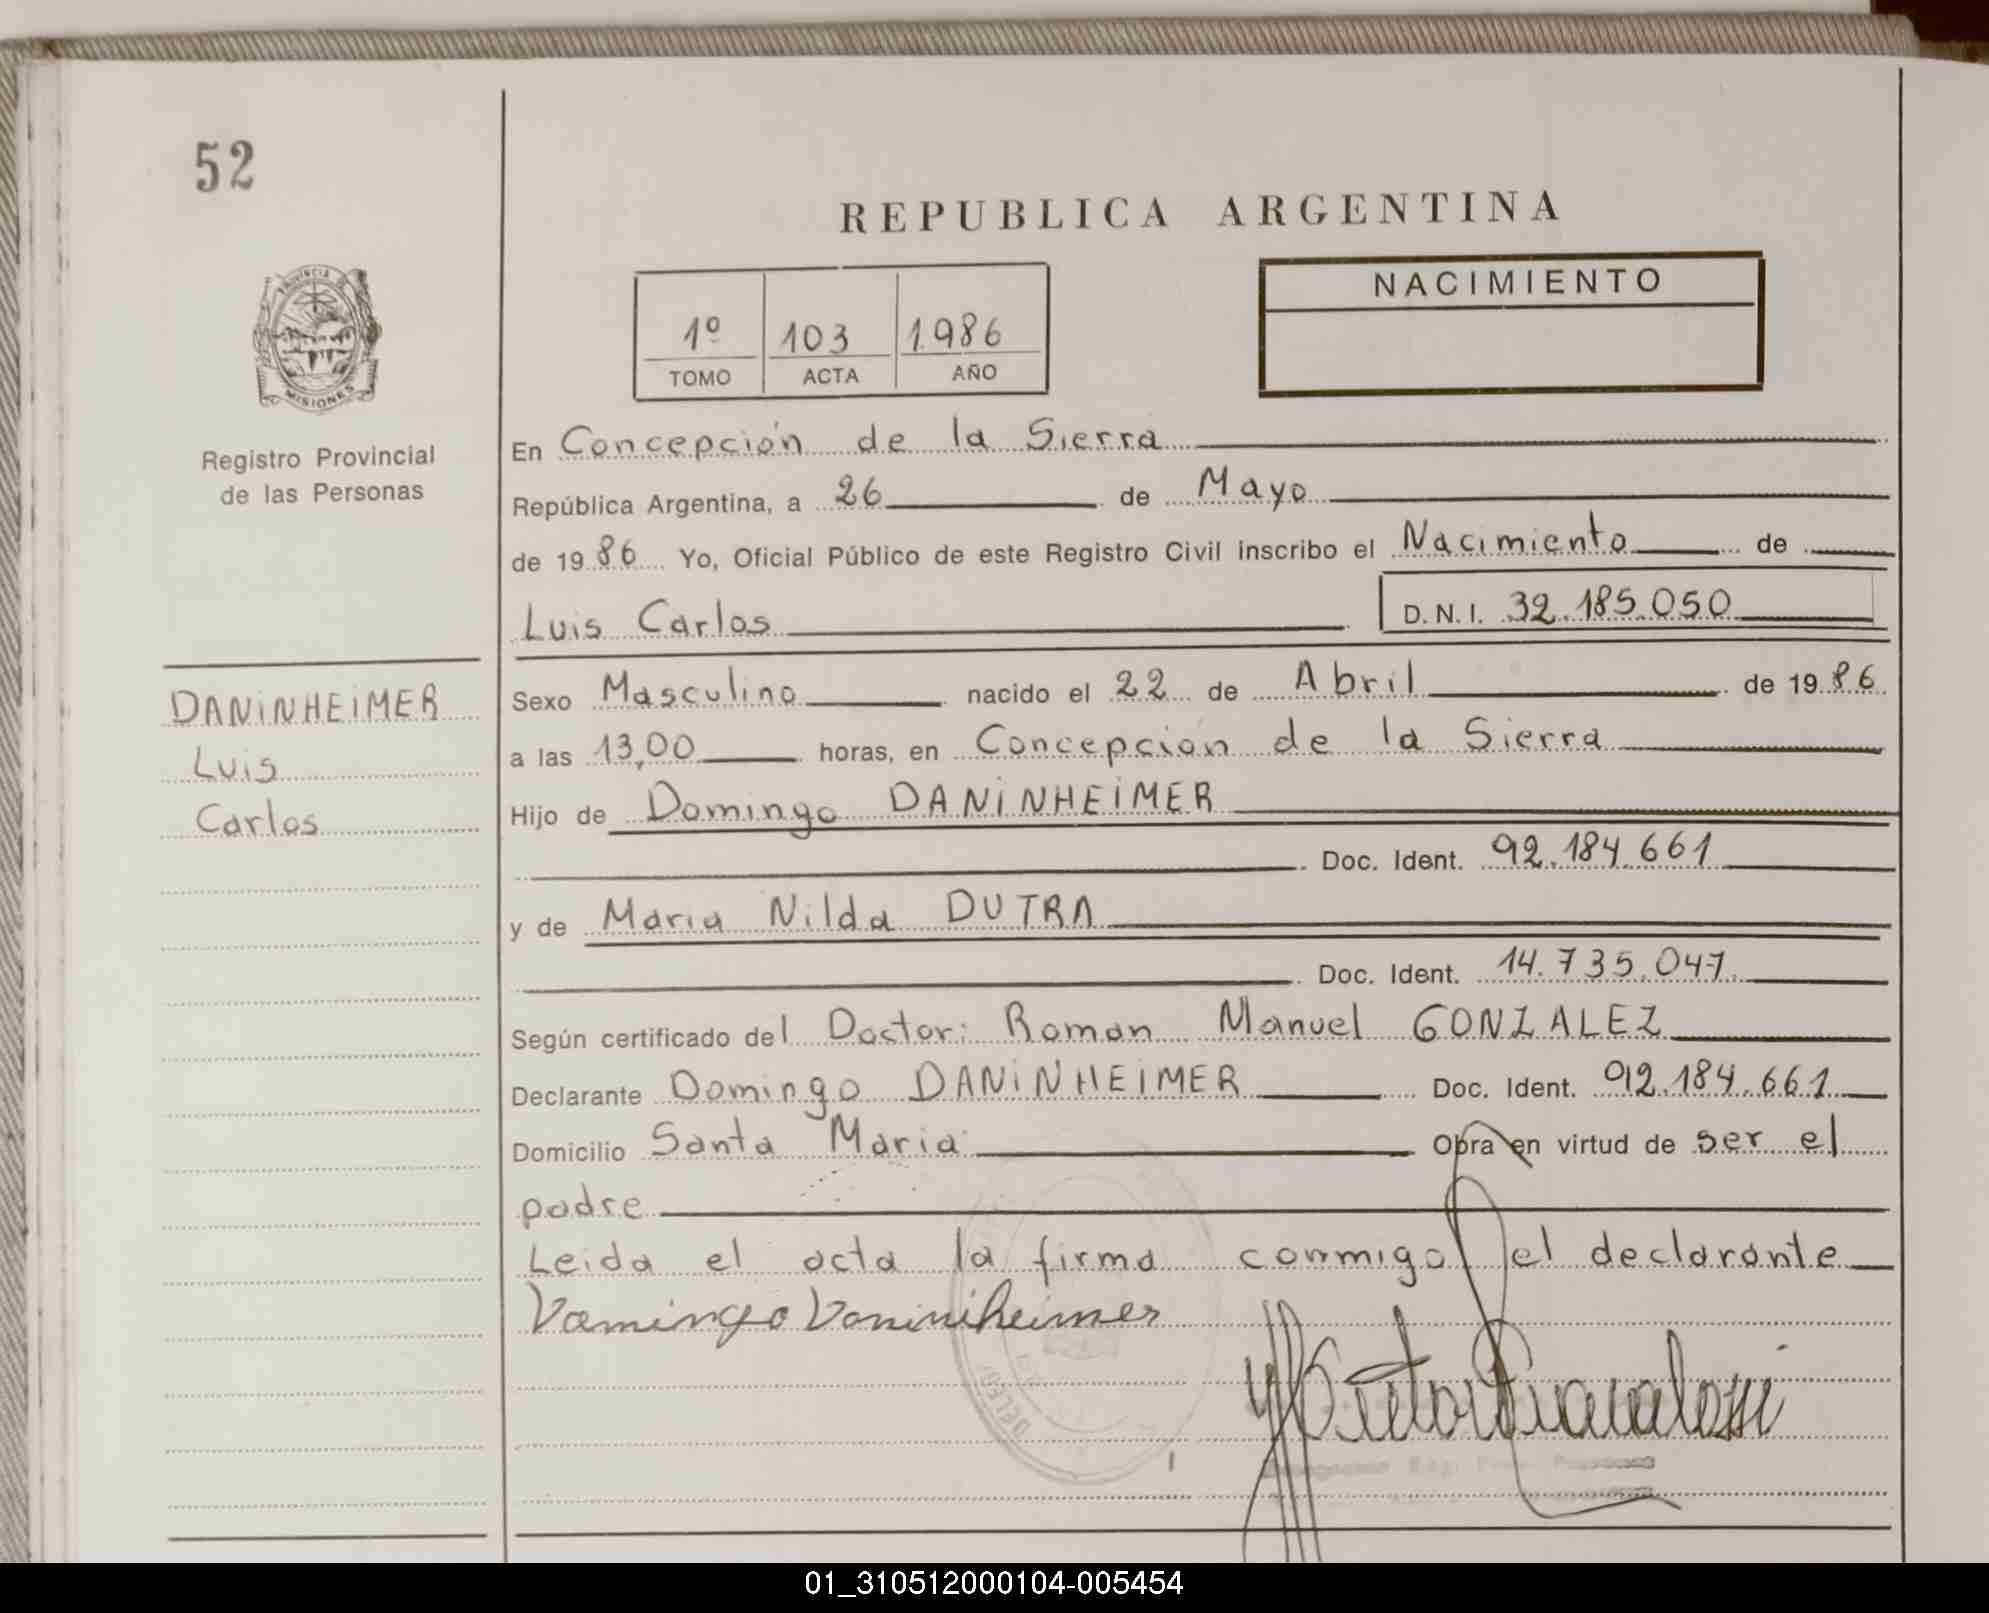 52
REPUBLICA ARGENTINA
PROVINCIA DE
MISIONES
Registro Provincial
de las Personas
1º 103 1986
TOMO ACTA AÑO
NACIMIENTO
En Concepción de la Sierra
República Argentina, a 26 de Mayo
de 1986 Yo, Oficial Público de este Registro Civil inscribo el Nacimiento de
Luis Carlos D.N.I. 32.185.050
DANINHEIMER
Luis
Carlos
Sexo Masculino nacido el 22 de Abril de 1986
a las 13,00 horas, en Concepcion de la Sierra
Hijo de Domingo DANINHEIMER
Doc. Ident. 92.184.661
y de Maria Nilda DUTRA
Doc. Ident. 14.735.047
Según certificado del Doctor: Roman Manuel GONZALEZ
Declarante Domingo DANINHEIMER Doc. Ident. 92.184.661
Domicilio Santa Maria Obra en virtud de ser el
padre
Leida el acta la firma conmigo el declarante
01_310512000104-005454